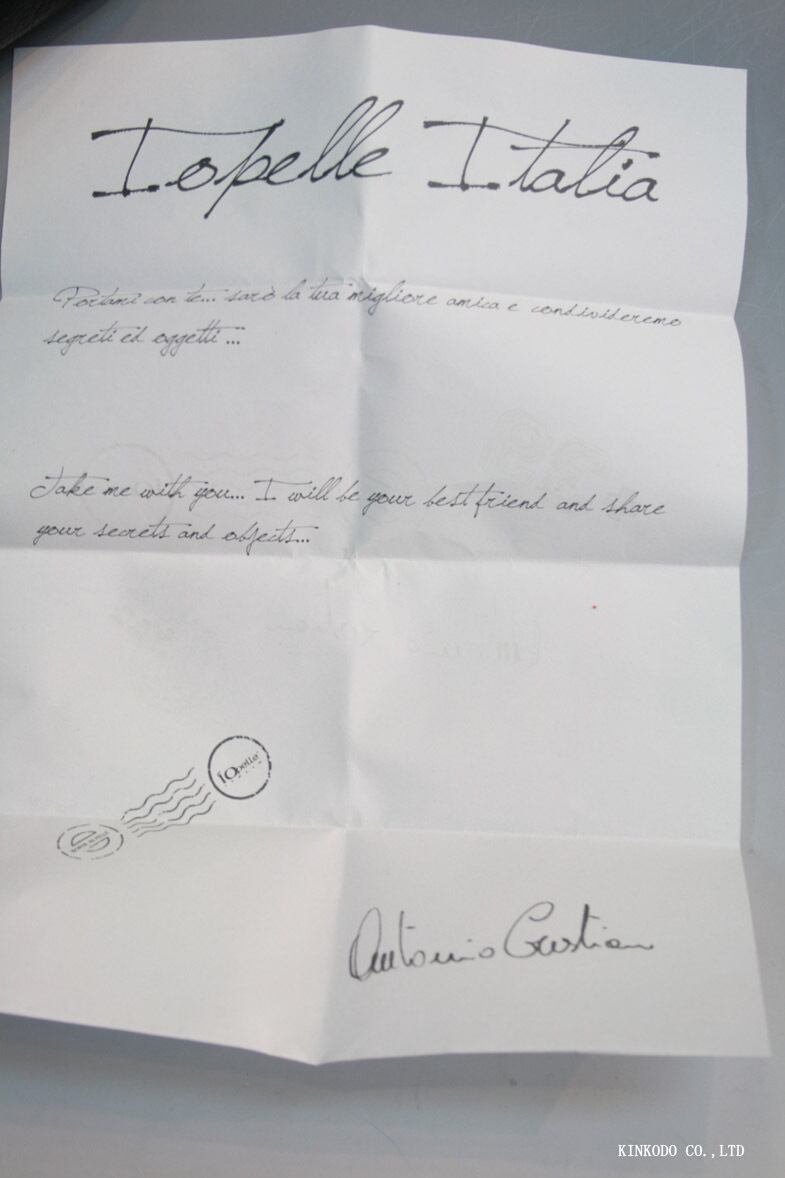 Iopelle Italia
Portami con te... sarò la tua migliore amica e condivideremo
segreti ed oggetti...
Take me with you... I will be your best friend and share
your secrets and objects...
iopelle
Antonio
KINKODO CO.,LTD